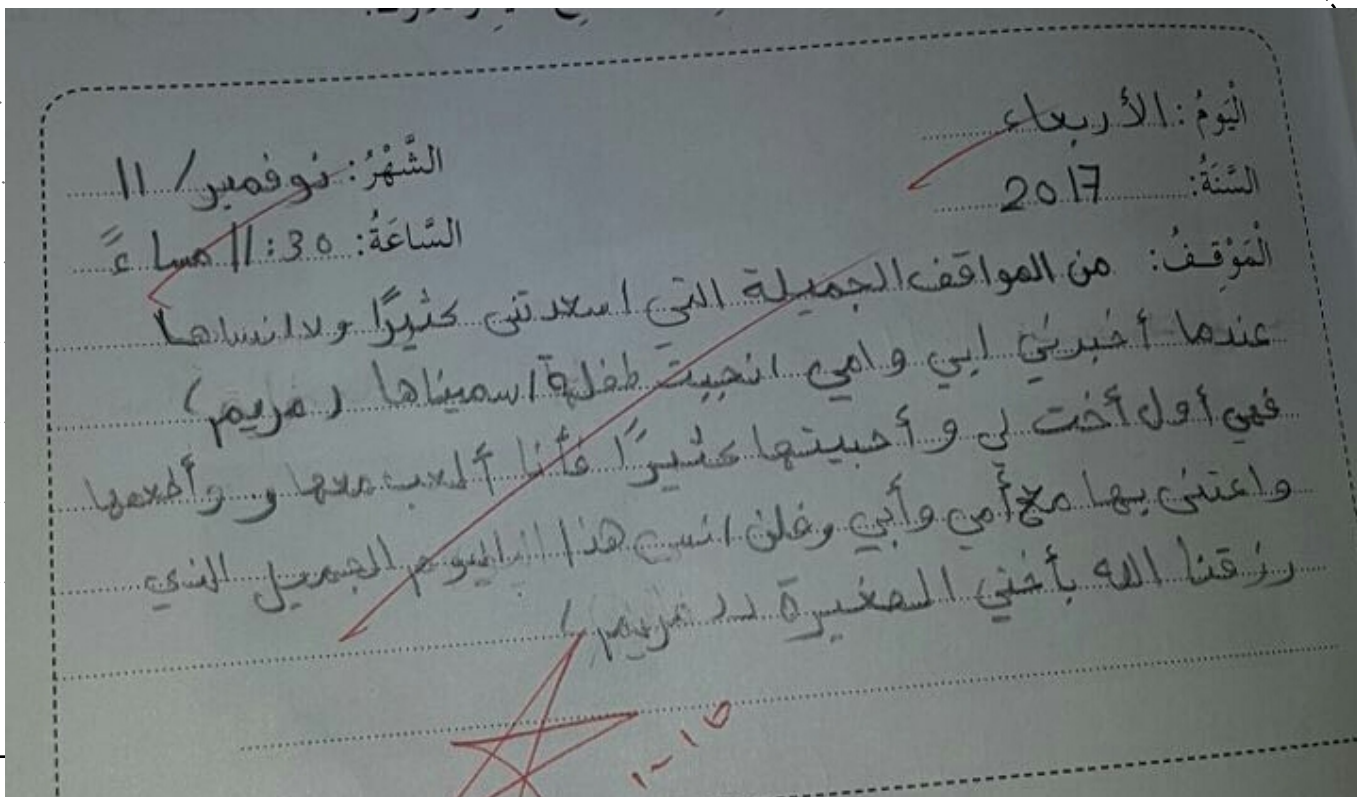 الْيَوْمُ: الأربعاء الشَّهْرُ: نوفمبر / 11
السَّنَةُ: 2017 السَّاعَةُ: 11:30 مساءً
الْمَوْقِفُ: من المواقف الجميلة التي اسعدتني كثيرًا ولا انساها
عندما أخبرني ابي وامي انجبت طفلة اسميناها (مريم)
فهي أول أخت لي و أحببتها كثيرًا فأنا ألعب معها و وأطعمها
واعتني بها مع أمي وأبي وفلن انسى هذا اليوم الجميل الذي
رزقنا الله بأختي الصغيرة (( مريم )